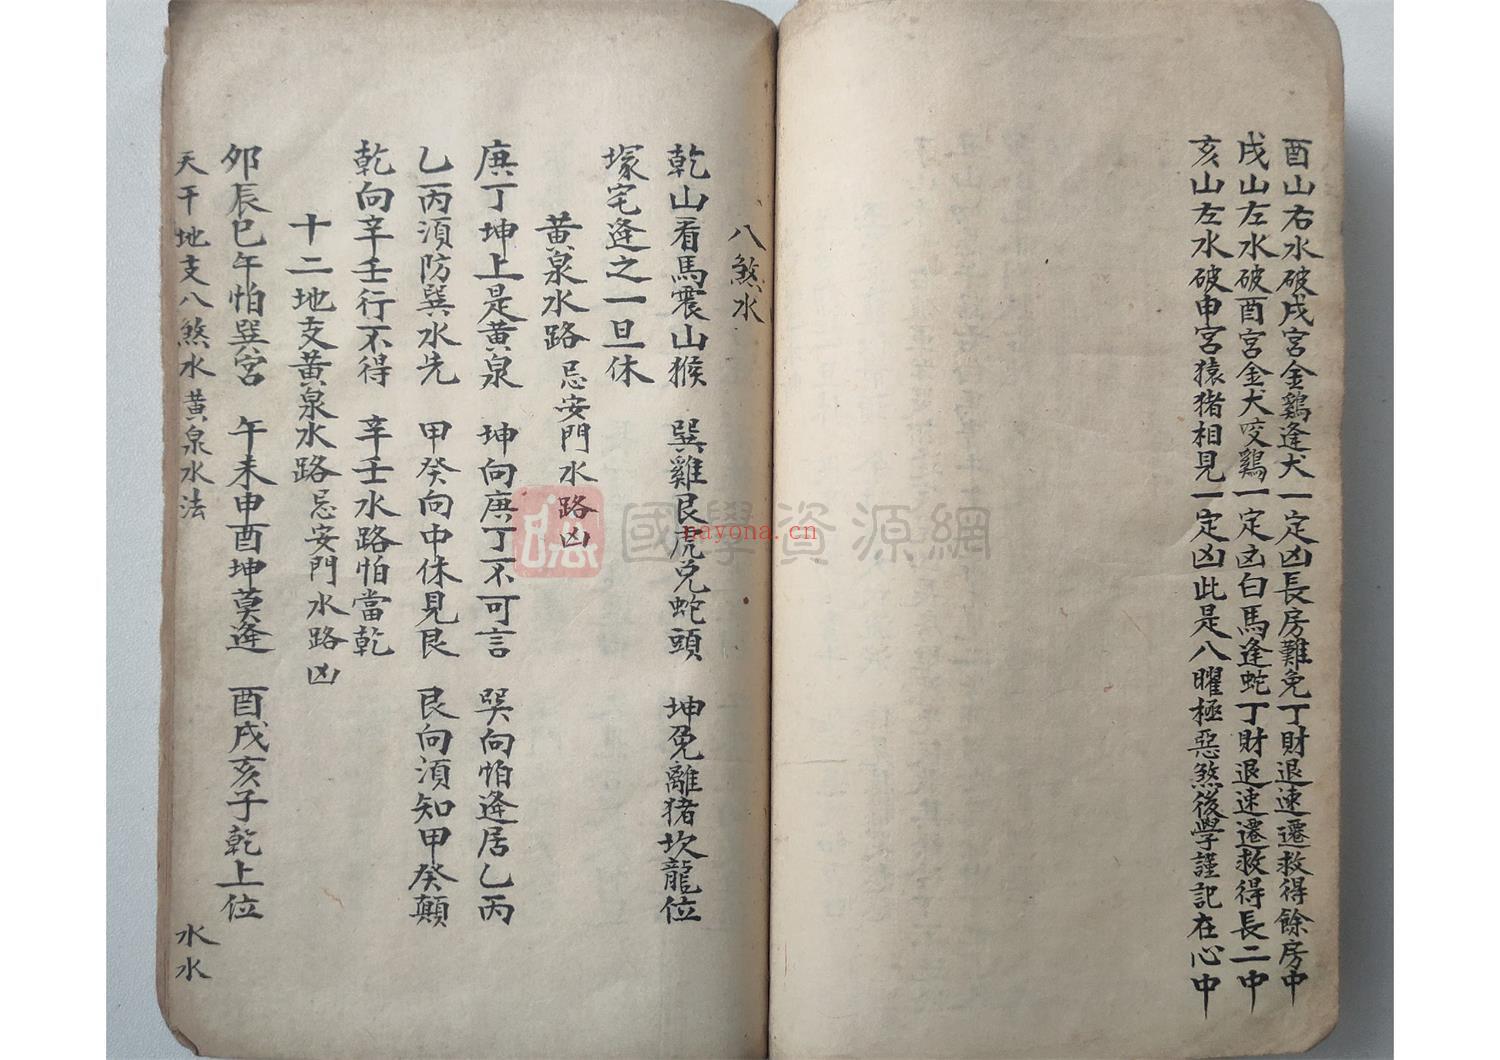 酉山右水破戌宮金鷄逢犬一定凶長房難免丁財退速遷救得餘房中
戌山左水破酉宮金犬咬鷄一定凶白馬逢蛇丁財退速遷救得長二中
亥山左水破申宮猿猪相見一定凶此是八曜極惡煞後學謹記在心中
八煞水
乾山看馬震山猴 巽雞艮虎兌蛇頭 坤兔離猪坎龍位
塚宅逢之一旦休
黄泉水路忌安門水路凶
庚丁坤上是黄泉 坤向庚丁不可言 巽向怕逢居乙丙
乙丙須防巽水先 甲癸向中休見艮 艮向須知甲癸顛
乾向辛壬行不得 辛壬水路怕當乾
十二地支黄泉水路忌安門水路凶
卯辰巳午怕巽宮 午未申酉坤莫逢 酉戌亥子乾上位
天干地支八煞水黄泉水法 水水
國學資源網
nayona.cn